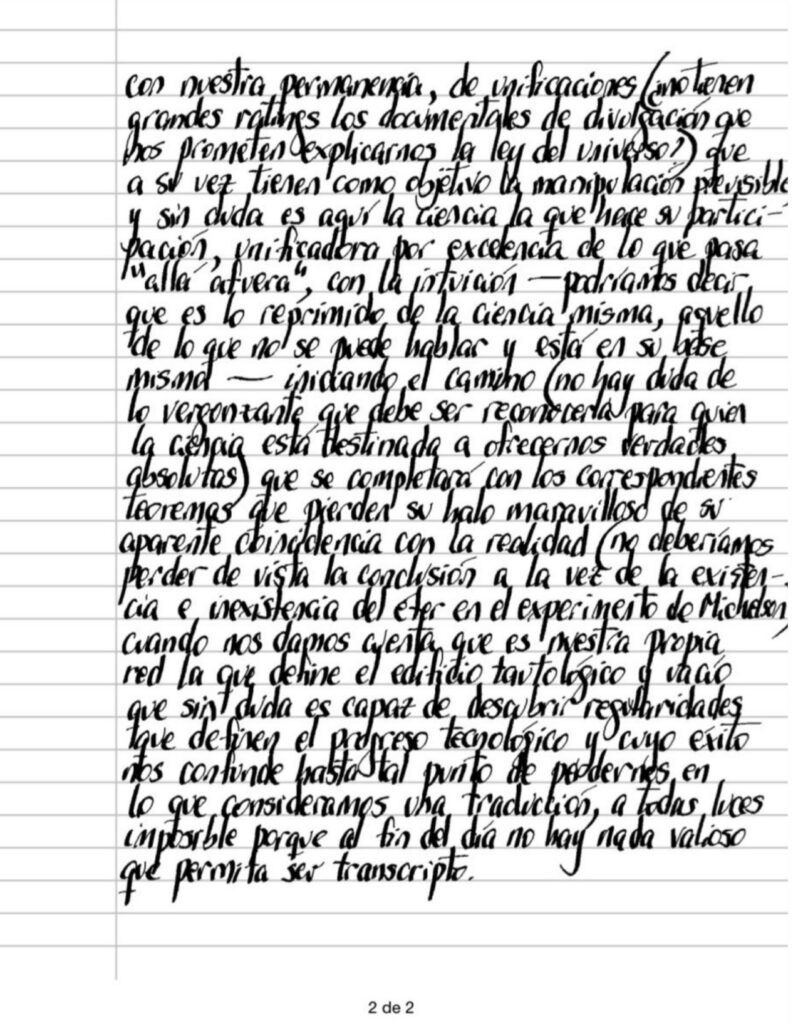 con nuestra permanencia, de unificaciones (¿no tienen
grandes ratings los documentales de divulgación que
nos prometen explicarnos la ley del universo?) que
a su vez tienen como objetivo la manipulación previsible
y sin duda es aquí la ciencia la que hace su partici-
pación, unificadora por excelencia de lo que pasa
"allá afuera", con la intuición — podríamos decir
que es lo reprimido de la ciencia misma, aquello
de lo que no se puede hablar y está en su base
misma — iniciando el camino (no hay duda de
lo vergonzante que debe ser reconocerla para quien
la ciencia está destinada a ofrecernos verdades
absolutas) que se completará con los correspondientes
teoremas que pierden su halo maravilloso de su
aparente coincidencia con la realidad (no deberíamos
perder de vista la conclusión a la vez de la existen-
cia e inexistencia del éter en el experimento de Michelson)
cuando nos damos cuenta que es nuestra propia
red la que define el edificio tautológico y vacío
que sin duda es capaz de descubrir regularidades
que definen el progreso tecnológico y cuyo éxito
nos confunde hasta tal punto de perdernos, en
lo que consideramos una traducción, a todas luces
imposible porque al fin del día no hay nada valioso
que permita ser transcripto.
2 de 2